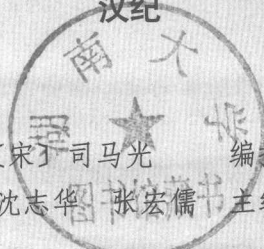 汉纪
南大学
[宋] 司马光 编
沈志华 张宏儒 主编